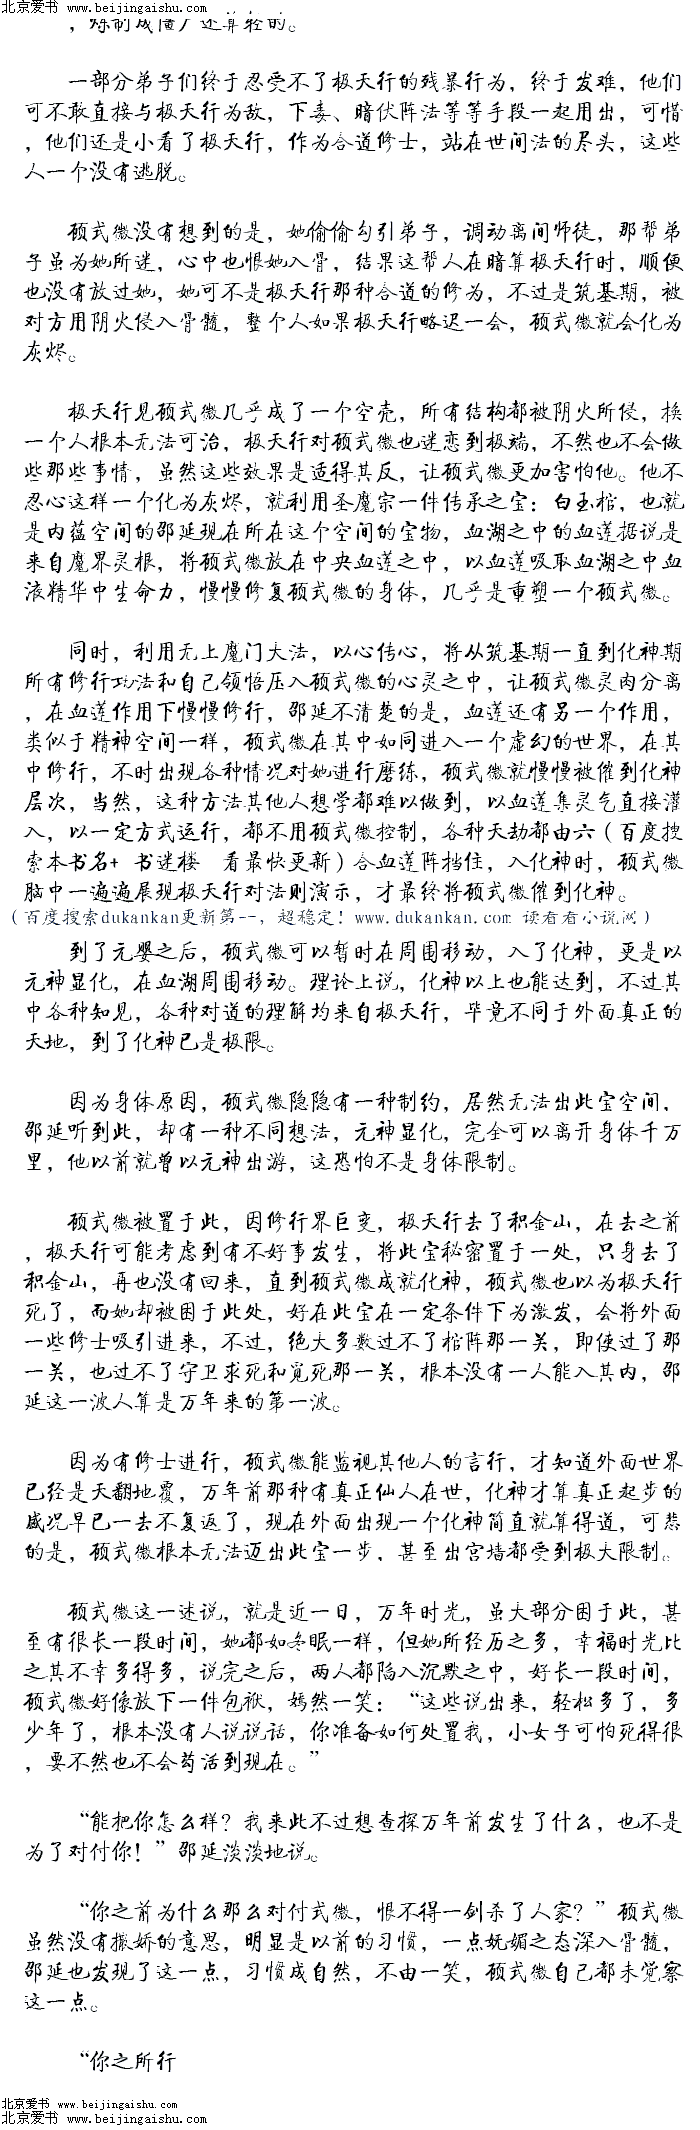 北京爱书 www.beijingaishu.com
，炼制成僵尸还算轻的。
一部分弟子们终于忍受不了极天行的残暴行为，终于发难，他们
可不敢直接与极天行为敌，下毒、暗伏阵法等等手段一起用出，可惜
，他们还是小看了极天行，作为合道修士，站在世间法的尽头，这些
人一个没有逃脱。
硕式微没有想到的是，她偷偷勾引弟子，调动离间师徒，那帮弟
子虽为她所迷，心中也恨她入骨，结果这帮人在暗算极天行时，顺便
也没有放过她，她可不是极天行那种合道的修为，不过是筑基期，被
对方用阴火侵入骨髓，整个人如果极天行略迟一会，硕式微就会化为
灰烬。
极天行见硕式微几乎成了一个空壳，所有结构都被阴火所侵，换
一个人根本无法可治，极天行对硕式微也迷恋到极端，不然也不会做
些那些事情，虽然这些效果是适得其反，让硕式微更加害怕他。他不
忍心这样一个化为灰烬，就利用圣魔宗一件传承之宝：白玉棺，也就
是内蕴空间的邵延现在所在这个空间的宝物，血湖之中的血莲据说是
来自魔界灵根，将硕式微放在中央血莲之中，以血莲吸取血湖之中血
液精华中生命力，慢慢修复硕式微的身体，几乎是重塑一个硕式微。
同时，利用无上魔门大法，以心传心，将从筑基期一直到化神期
所有修行功法和自己领悟压入硕式微的心灵之中，让硕式微灵肉分离
，在血莲作用下慢慢修行，邵延不清楚的是，血莲还有另一个作用，
类似于精神空间一样，硕式微在其中如同进入一个虚幻的世界，在其
中修行，不时出现各种情况对她进行磨练，硕式微就慢慢被催到化神
层次，当然，这种方法其他人想学都难以做到，以血莲集灵气直接灌
入，以一定方式运行，都不用硕式微控制，各种天劫都由六（百度搜
索本书名+ 书迷楼 看最快更新）合血莲阵挡住，入化神时，硕式微
脑中一遍遍展现极天行对法则演示，才最终将硕式微催到化神。
（百度搜索dukankan更新第--，超稳定！www.dukankan.com 读看看小说网）
到了元婴之后，硕式微可以暂时在周围移动，入了化神，更是以
元神显化，在血湖周围移动。理论上说，化神以上也能达到，不过其
中各种知见，各种对道的理解均来自极天行，毕竟不同于外面真正的
天地，到了化神已是极限。
因为身体原因，硕式微隐隐有一种制约，居然无法出此宝空间，
邵延听到此，却有一种不同想法，元神显化，完全可以离开身体千万
里，他以前就曾以元神出游，这恐怕不是身体限制。
硕式微被置于此，因修行界巨变，极天行去了积金山，在去之前
，极天行可能考虑到有不好事发生，将此宝秘密置于一处，只身去了
积金山，再也没有回来，直到硕式微成就化神，硕式微也以为极天行
死了，而她却被困于此处，好在此宝在一定条件下为激发，会将外面
一些修士吸引进来，不过，绝大多数过不了棺阵那一关，即使过了那
一关，也过不了守卫求死和觅死那一关，根本没有一人能入其内，邵
延这一波人算是万年来的第一波。
因为有修士进行，硕式微能监视其他人的言行，才知道外面世界
已经是天翻地覆，万年前那种有真正仙人在世，化神才算真正起步的
盛况早已一去不复返了，现在外面出现一个化神简直就算得道，可悲
的是，硕式微根本无法迈出此宝一步，甚至出宫墙都受到极大限制。
硕式微这一述说，就是近一日，万年时光，虽大部分困于此，甚
至有很长一段时间，她都如冬眠一样，但她所经历之多，幸福时光比
之其不幸多得多，说完之后，两人都陷入沉默之中，好长一段时间，
硕式微好像放下一件包袱，嫣然一笑：“这些说出来，轻松多了，多
少年了，根本没有人说说话，你准备如何处置我，小女子可怕死得很
，要不然也不会苟活到现在。”
“能把你怎么样？我来此不过想查探万年前发生了什么，也不是
为了对付你！”邵延淡淡地说。
“你之前为什么那么对付式微，恨不得一剑杀了人家？”硕式微
虽然没有撒娇的意思，明显是以前的习惯，一点妩媚之态深入骨髓，
邵延也发现了这一点，习惯成自然，不由一笑，硕式微自己都未觉察
这一点。
“你之所行
北京爱书 www.beijingaishu.com
北京爱书 www.beijingaishu.com